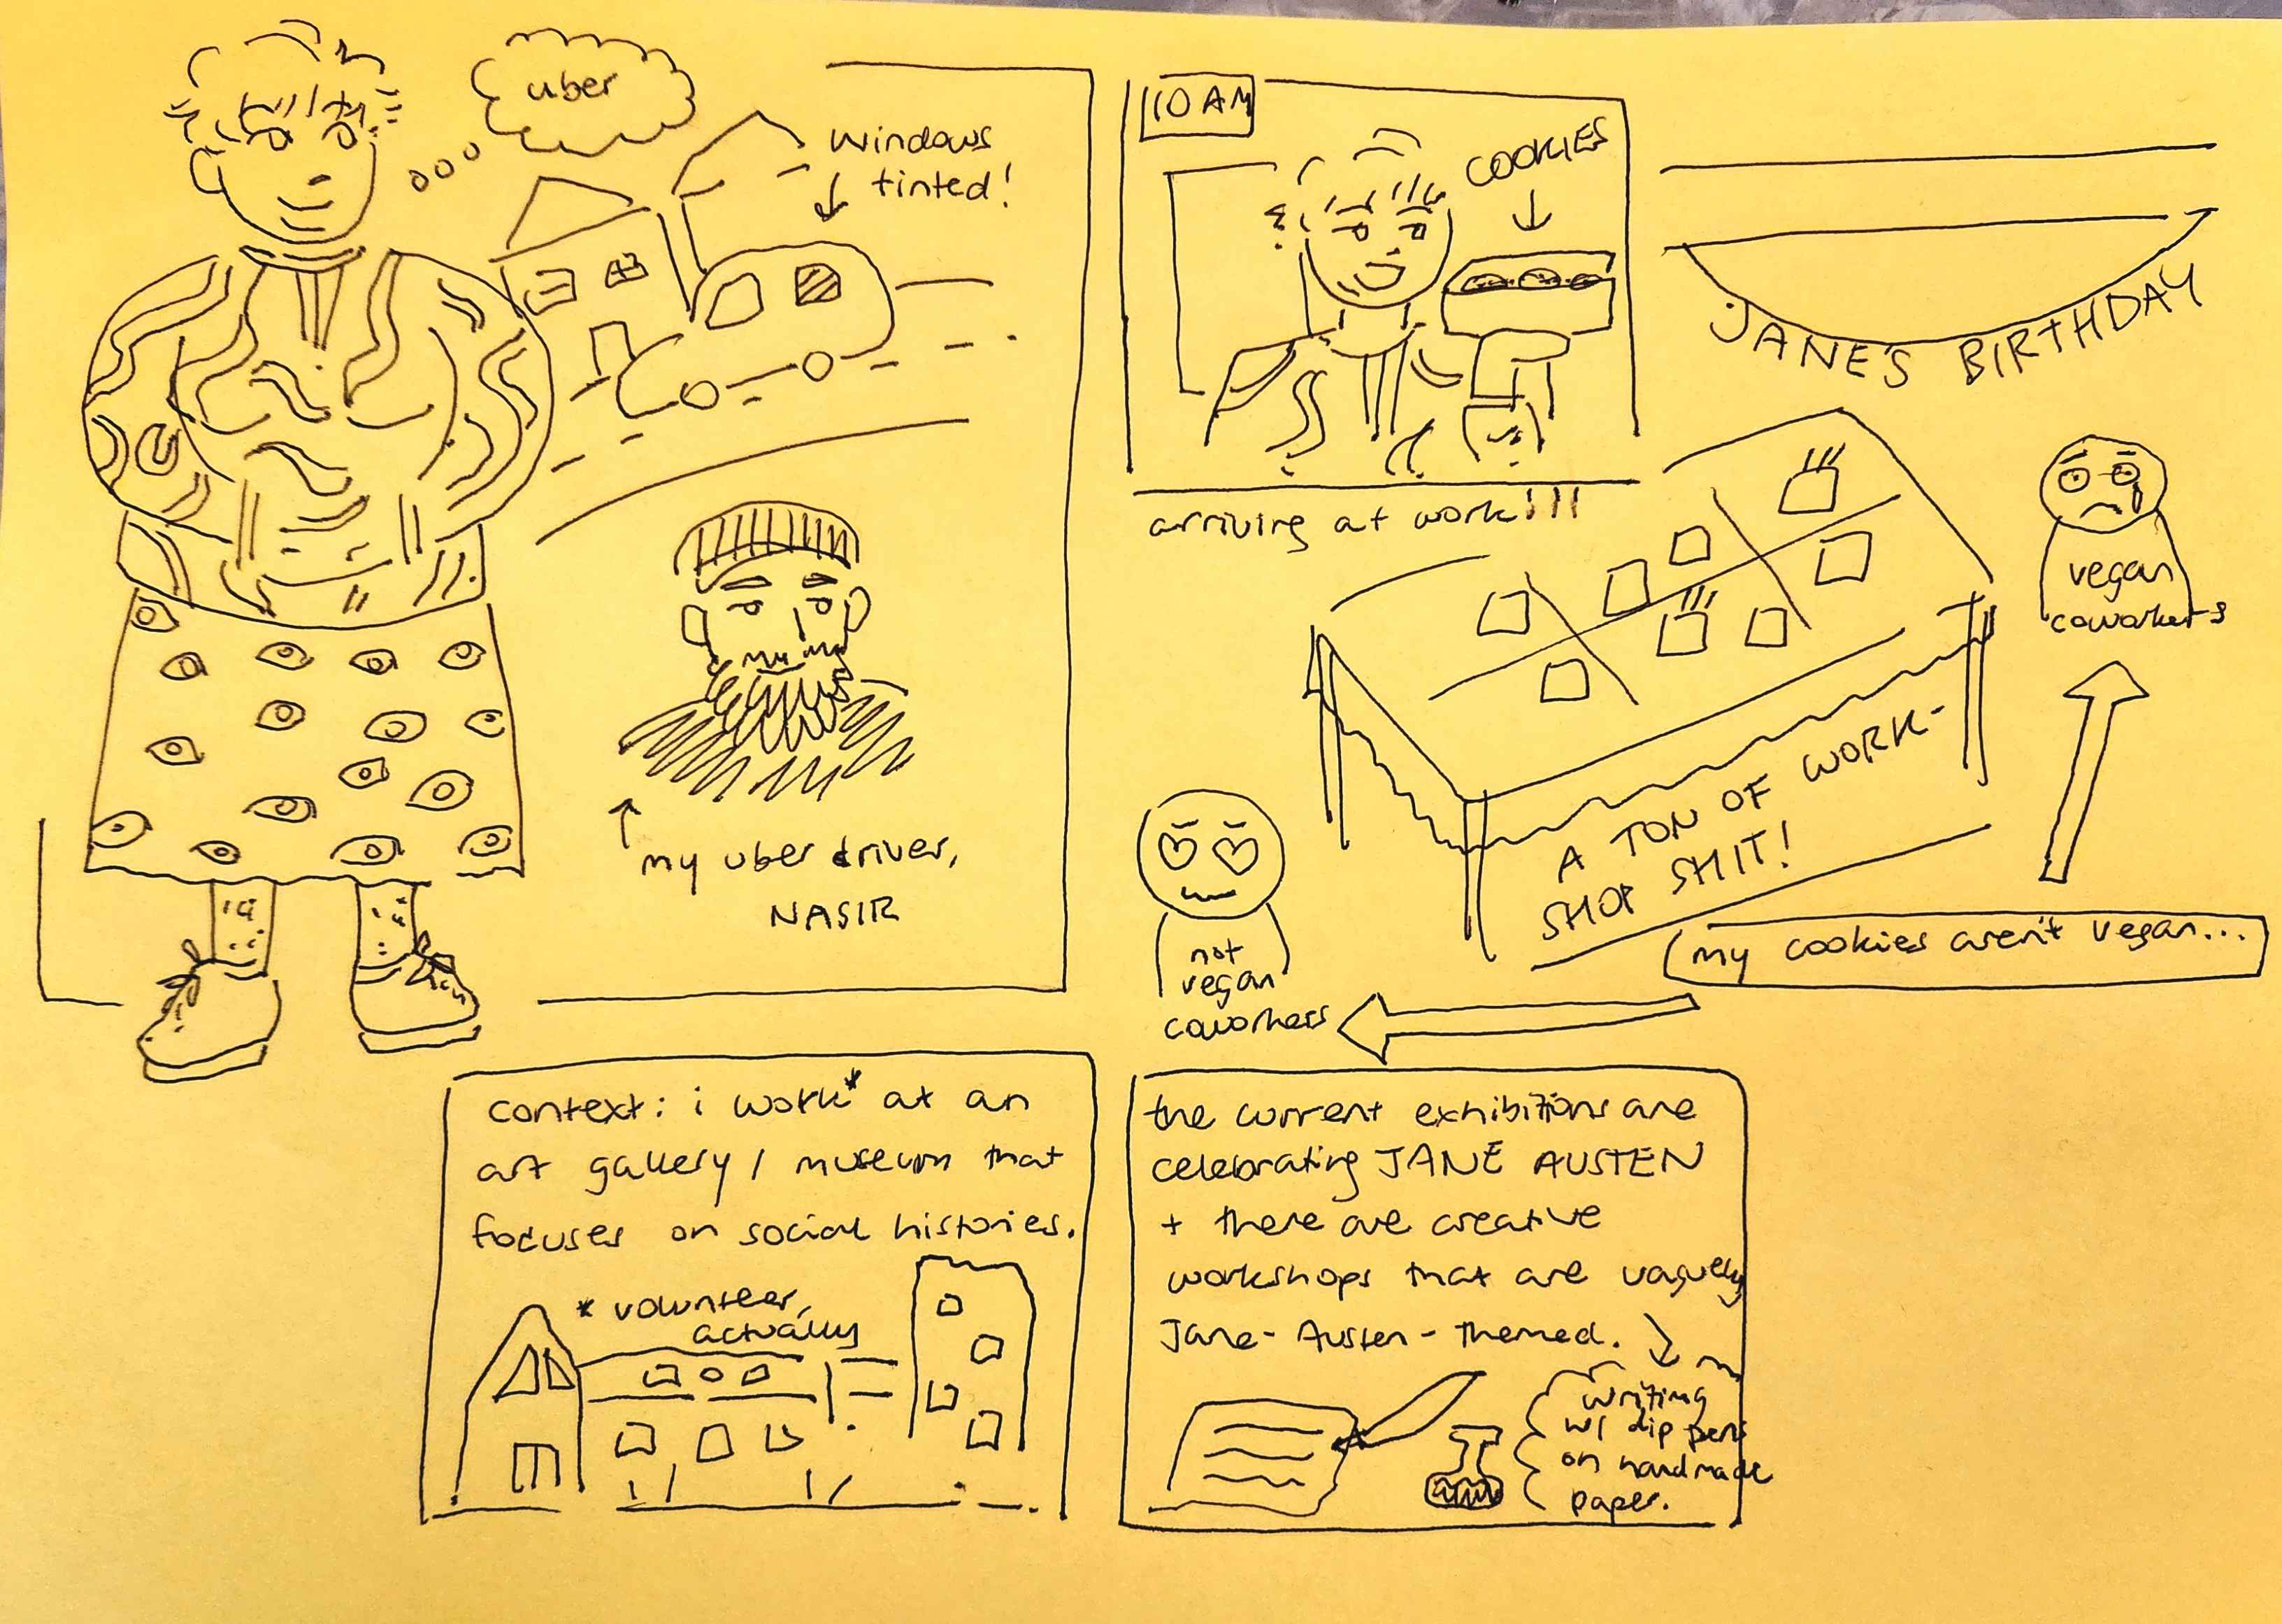 uber
windows
tinted!
my uber driver,
NASIR
10 AM
COOKIES
arriving at work!!!
JANE'S BIRTHDAY
A TON OF WORK-
SHOP SHIT!
vegan
coworkers
my cookies aren't vegan...
not
vegan
coworkers
context: i work* at an
art gallery / museum that
focuses on social histories.
* volunteer,
actually
the current exhibitions are
celebrating JANE AUSTEN
+ there are creative
workshops that are vaguely
Jane-Austen-themed.
writing
w/ dip pens
on handmade
paper.